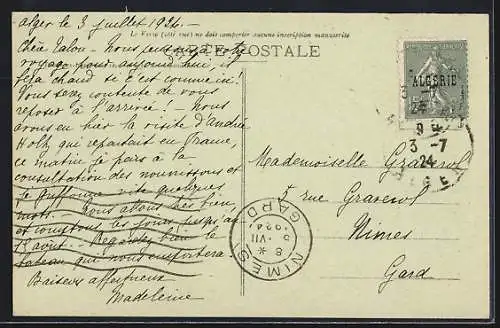 Alger le 3 juillet 1924.
Le Recto (côté vue) ne doit comporter aucune inscription manuscrite
CARTE POSTALE
Chère Lalou - Nous pensons à votre
voyage pour aujourd'hui, il
fera chaud si c'est comme ici!
Vous serez contente de vous
reposer à l'arrivée! Nous
avons eu hier la visite d'André
Holtz qui repartait en France,
ce matin je pars à la
consultation des nourrissons et
je griffonne vite quelques
mots. - Nous allons très bien
et comptons les jours jusqu'au
1er août. Regardez bien le
bateau qui nous emportera!
Baisers affectueux
Madeleine
ALGERIE
3-7
24
Mademoiselle Graverol
5 rue Graverol
Nîmes
Gard
NIMES
GARD
8 *
5 VII
1924